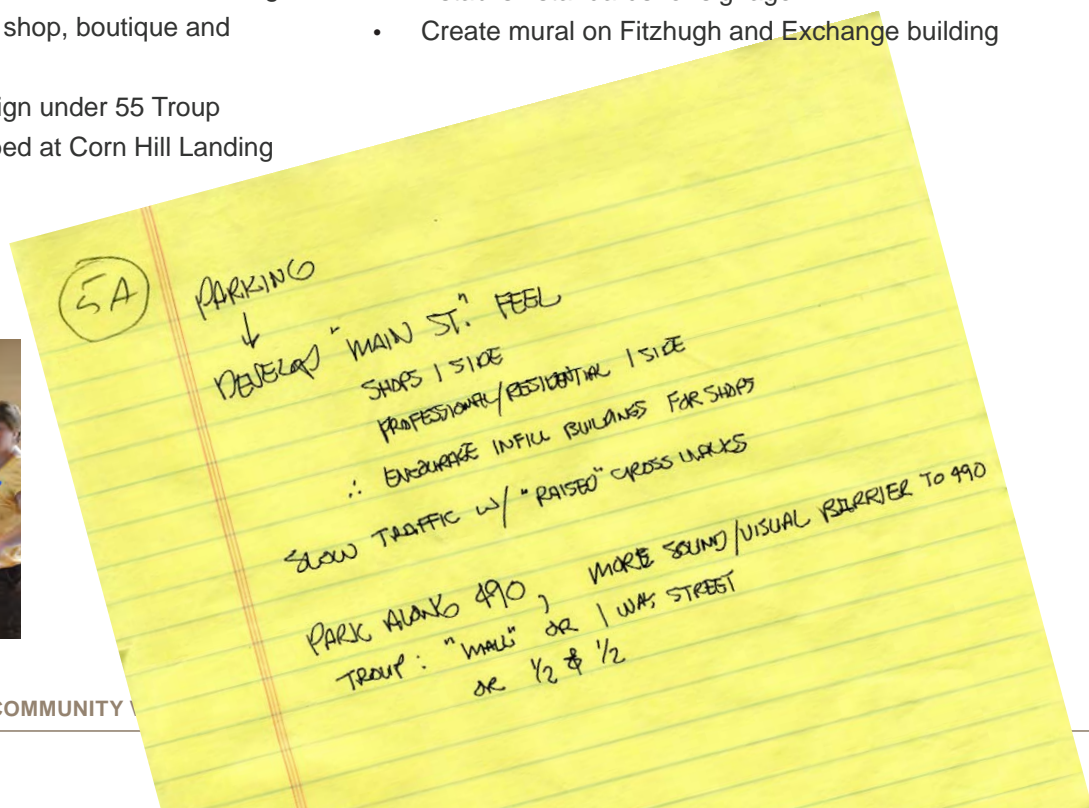 shop, boutique and
ign under 55 Troup
ed at Corn Hill Landing
• Create mural on Fitzhugh and Exchange building
5A
PARKING
↓
DEVELOP "MAIN ST." FEEL
SHOPS 1 SIDE
PROFESSIONAL/RESIDENTIAL 1 SIDE
∴ ENCOURAGE INFILL BUILDINGS FOR SHOPS
SLOW TRAFFIC W/ "RAISED" CROSS WALKS
PARK ALONG 490, MORE SOUND/VISUAL BARRIER TO 490
TROUP: "MALL" OR 1 WAY STREET
OR ½ & ½
COMMUNITY